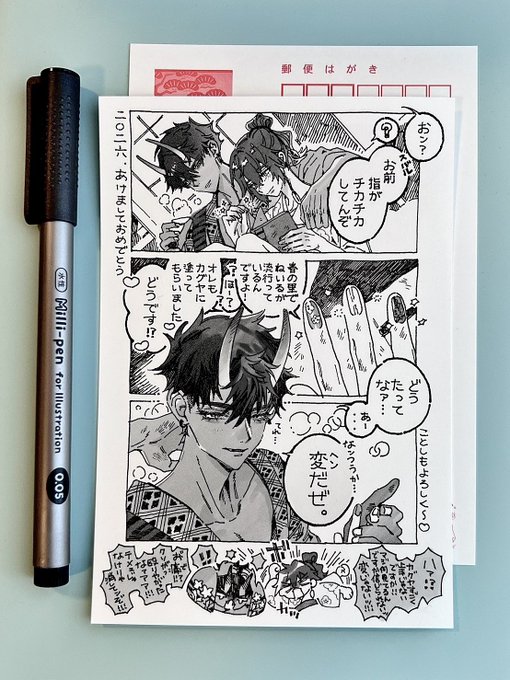 郵便はがき
二〇二六、あけましておめでとう
おン?
?
お前
指が
チカチカ
してんぞ
春の里で
ねいるが
流行って
いるん
ですよ
?ほー?
オレも
カグヤに
塗って
もらいました♡
どうです!?
どう
たって
なァ…
あー
てれ…
なンつうか…
ヘン
変だぜ。
ことしもよろしく〜♡
ハァ!?
水性
Milli-pen for Illustration
0.05